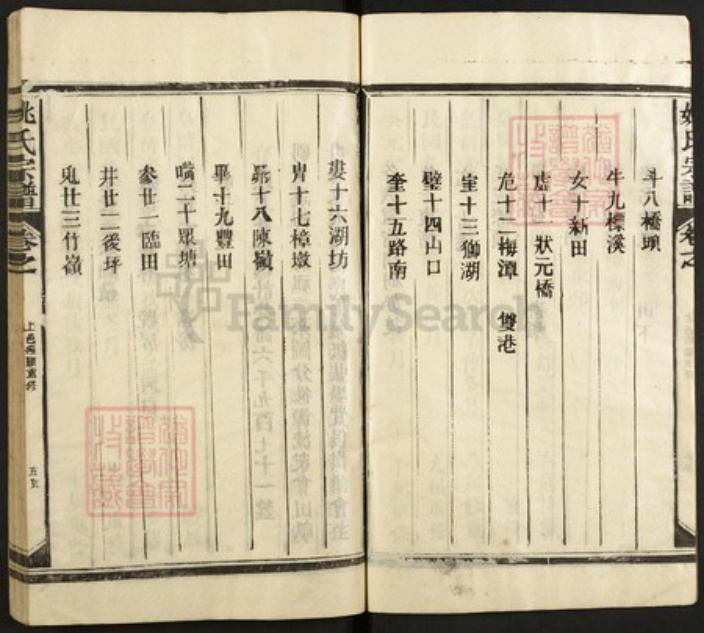 姚氏宗譜
卷之
斗八橋頭
牛九櫟溪
女十新田
虛十 狀元橋
危十二梅潭 雙港
室十三獅湖
壁十四山口
奎十五路南
婁十六湖坊
胃十七樟墩
昴十八陳嶺
畢十九豐田
嘴二十眾塘
參廿一臨田
井廿二後坪
鬼廿三竹嶺
姚氏宗譜
卷之
FamilySearch